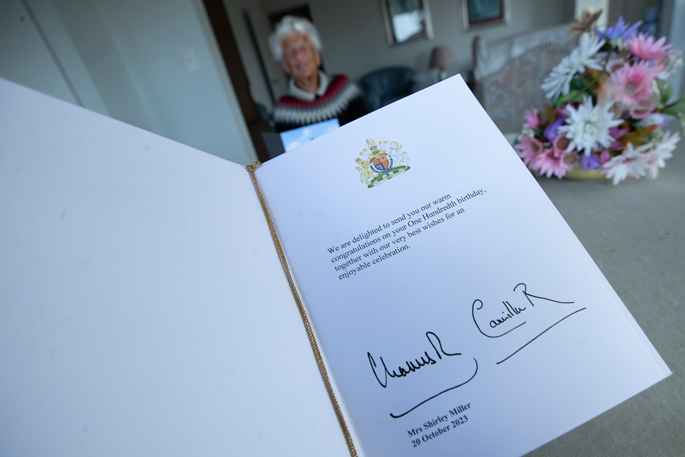 We are delighted to send you our warm
congratulations on your One Hundredth birthday,
together with our very best wishes for an
enjoyable celebration.
Charles R
Camilla R
Mrs Shirley Miller
20 October 2023